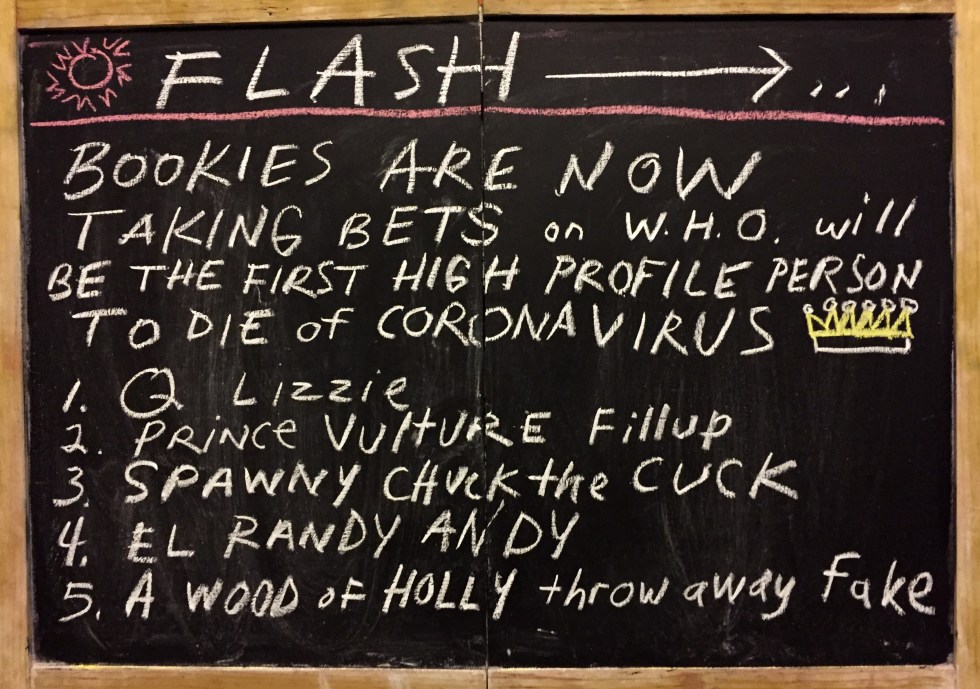 FLASH → ...
BOOKIES ARE NOW
TAKING BETS on W.H.O. will
BE THE FIRST HIGH PROFILE PERSON
TO DIE of CORONAVIRUS
1. Q Lizzie
2. PRiNCe VultURE Fillup
3. SPAWNY CHUCK the CUCK
4. EL RANDY ANDY
5. A WOOD oF HOLLY throw away fake